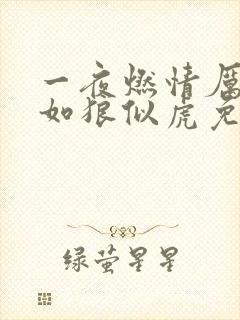 一夜燃情厉
如狼似虎免
绿萤星星